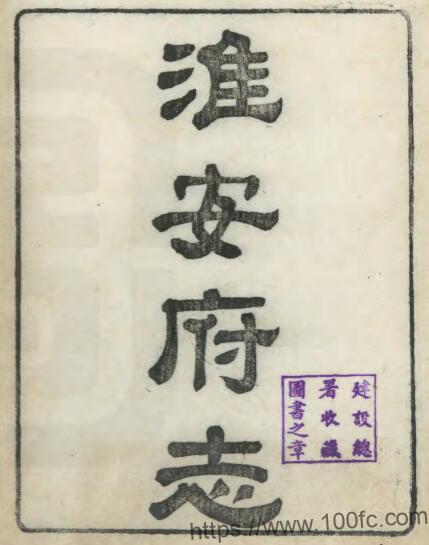 淮安府志
建設總
署收藏
圖書之章
https://www.100fc.com